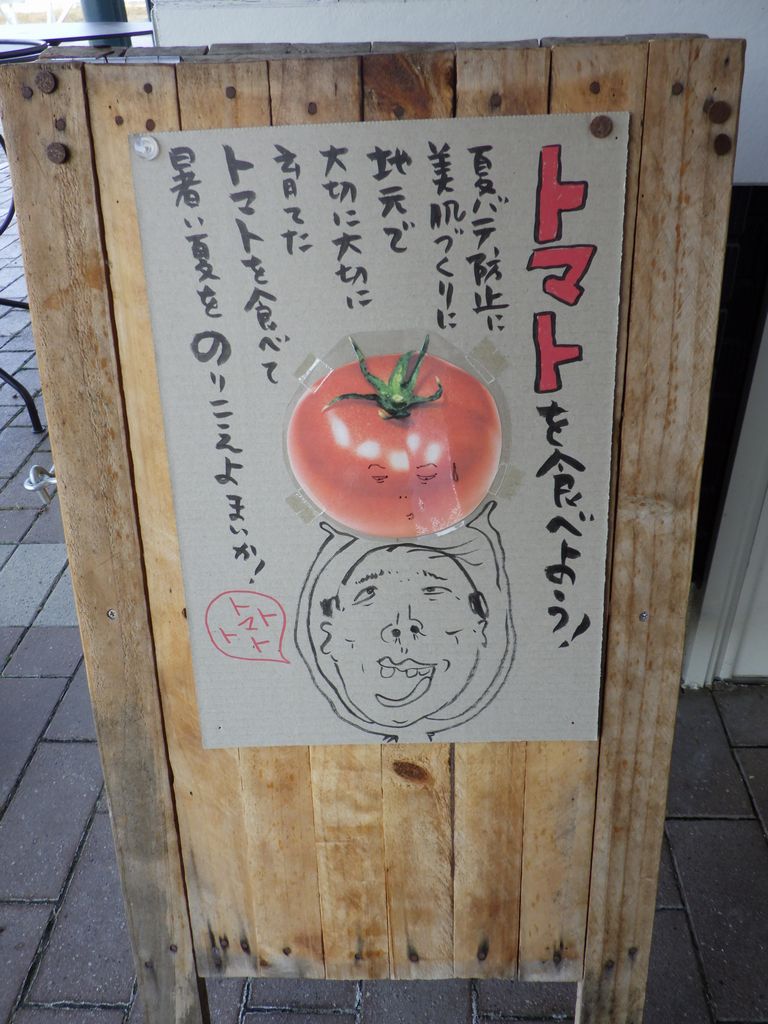 トマトを食べよう!
夏バテ防止に
美肌づくりに
地元で
大切に大切に
育てた
トマトを食べて
暑い夏をのりこえよまいか!
トマト
トマト